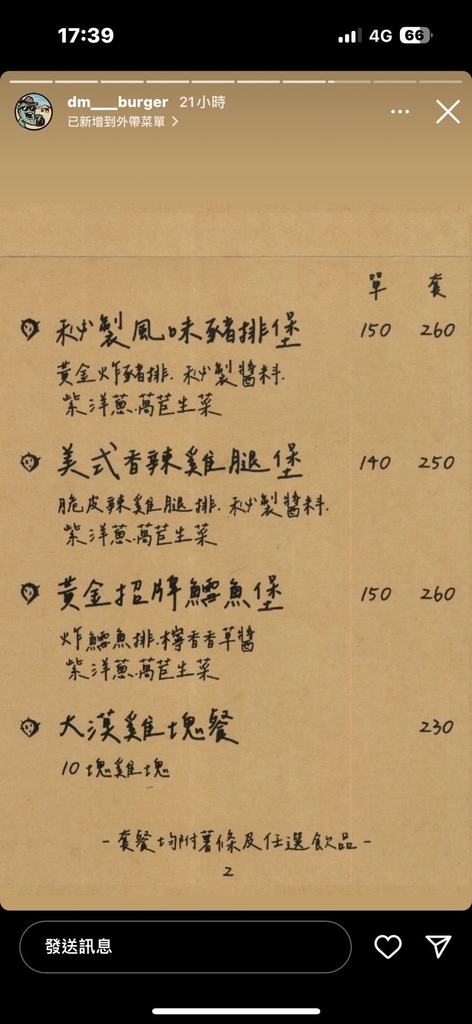 17:39
4G 66
dm___burger 21小時
已新增到外帶菜單 >
單 套
秘製風味豬排堡 150 260
黃金炸豬排.秘製醬料.
紫洋蔥.萵苣生菜
美式香辣雞腿堡 140 250
脆皮辣雞腿排.秘製醬料.
紫洋蔥.萵苣生菜
黃金招牌鱈魚堡 150 260
炸鱈魚排.檸香香草醬
紫洋蔥.萵苣生菜
大漠雞塊餐 230
10塊雞塊
-套餐均附薯條及任選飲品-
2
發送訊息